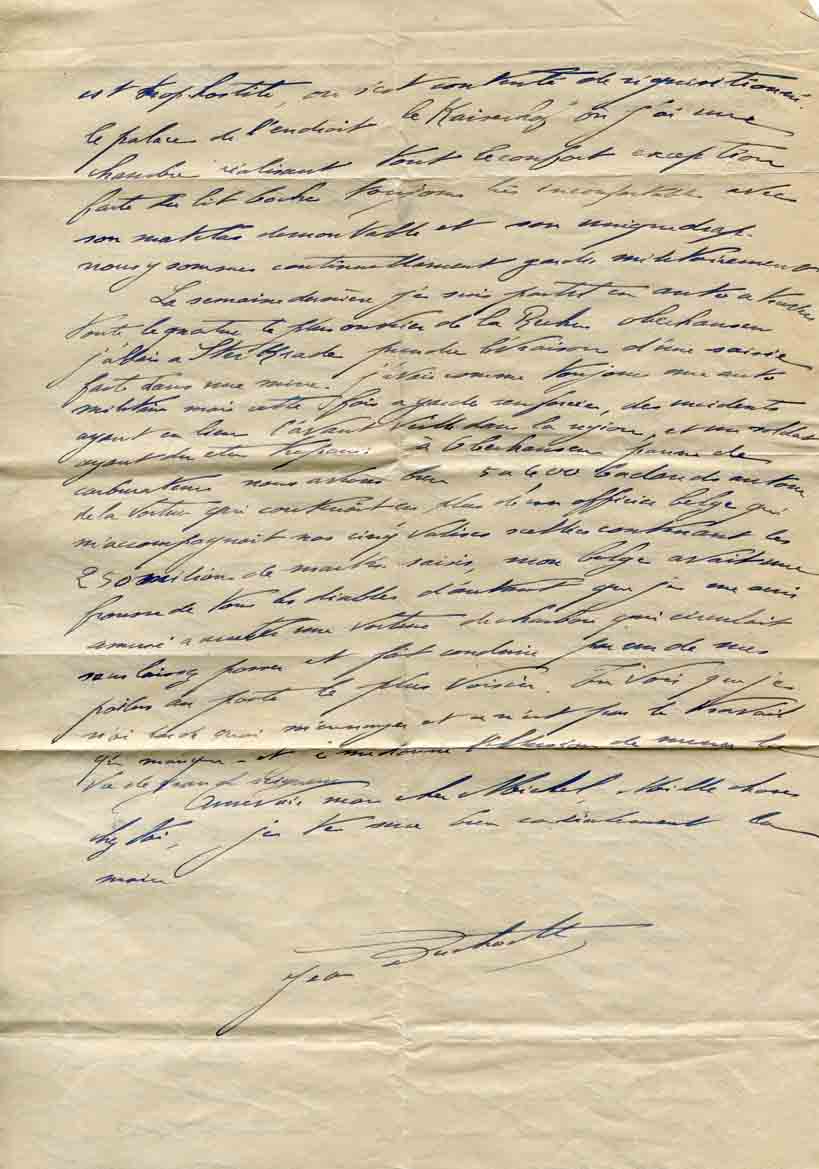 est trop hostile, on s'est contenté de réquisitionner
le palace de l'endroit le Kaiserhof où j'ai une
chambre réalisant tout le confort exception
faite du lit boche toujours très inconfortable avec
son matelas démontable et son unique drap.
nous y sommes continuellement gardés militairement
La semaine dernière je suis partit en auto a travers
toute le quartier le plus ouvrier de la Ruhr Oberhausen
j'allais a Sterkrade prendre livraison d'une saisie
faite dans une mine. j'avais comme toujours une auto
militaire mais cette fois a garde renforcée, des incidents
ayant eu lieu l'avant veille dans la région, et un soldat
ayant du etre trépané. à Oberhausen panne de
carburateur nous avions bien 5 a 600 badauds autour
de la voiture qui contenait en plus d'un officier belge qui
m'accompagnait nos cinq valises scellées contenant les
250 millions de marks saisis, mon belge avait une
frousse de tous les diables d'autant que je me suis
amusé a arreter une voiture de charbon qui circulait
sans laissez passer et fait conduire par un de mes
poilus au poste le plus voisin. Tu vois que je
n'ai pas de quoi m'ennuyer et ce n'est pas le travail
qui manque - et ça me donne l'illusion de mener la
vie de grand seigneur
Aurevoir mon cher Michel, Mille choses
chez toi, je te serre bien cordialement la
main
Jean